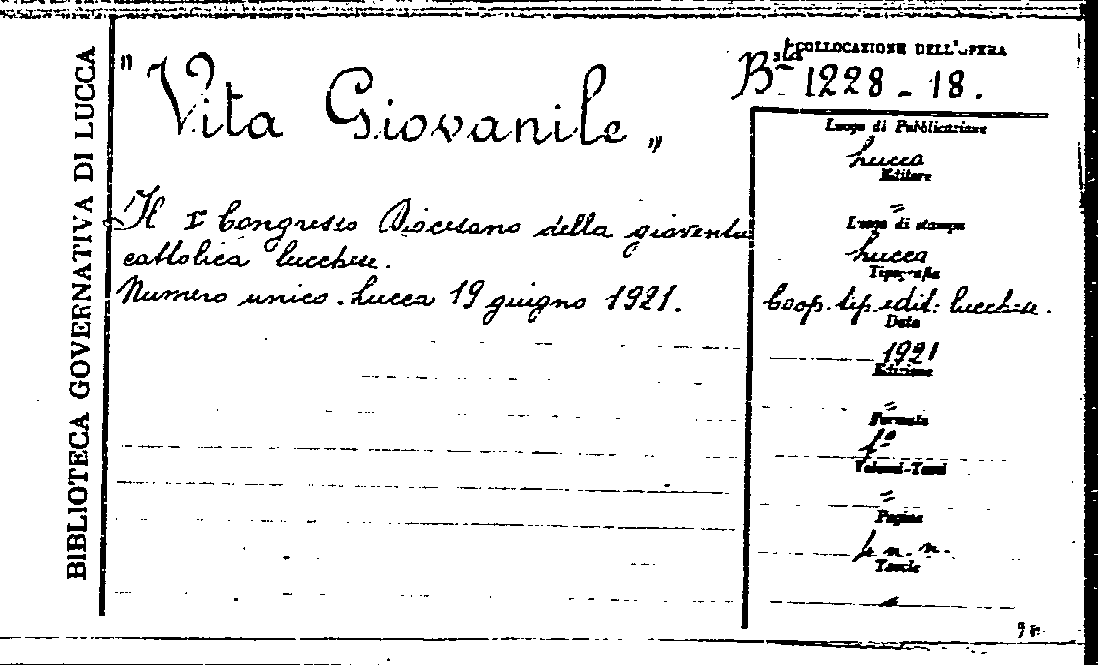 BIBLIOTECA GOVERNATIVA DI LUCCA
"Vita Giovanile„
Il I° Congresso Diocesano della gioventù
cattolica lucchese.
Numero unico. Lucca 19 giugno 1921.
COLLOCAZIONE DELL'OPERA
B.ta 1228 - 18.
Luogo di Pubblicazione
Lucca
Editore
=
Luogo di stampa
Lucca
Tipografia
Coop. tip. edit: lucchese.
Data
1921
Edizione
=
Formato
f°
Volumi-Tomi
=
Pagine
4 n. n.
Tavole